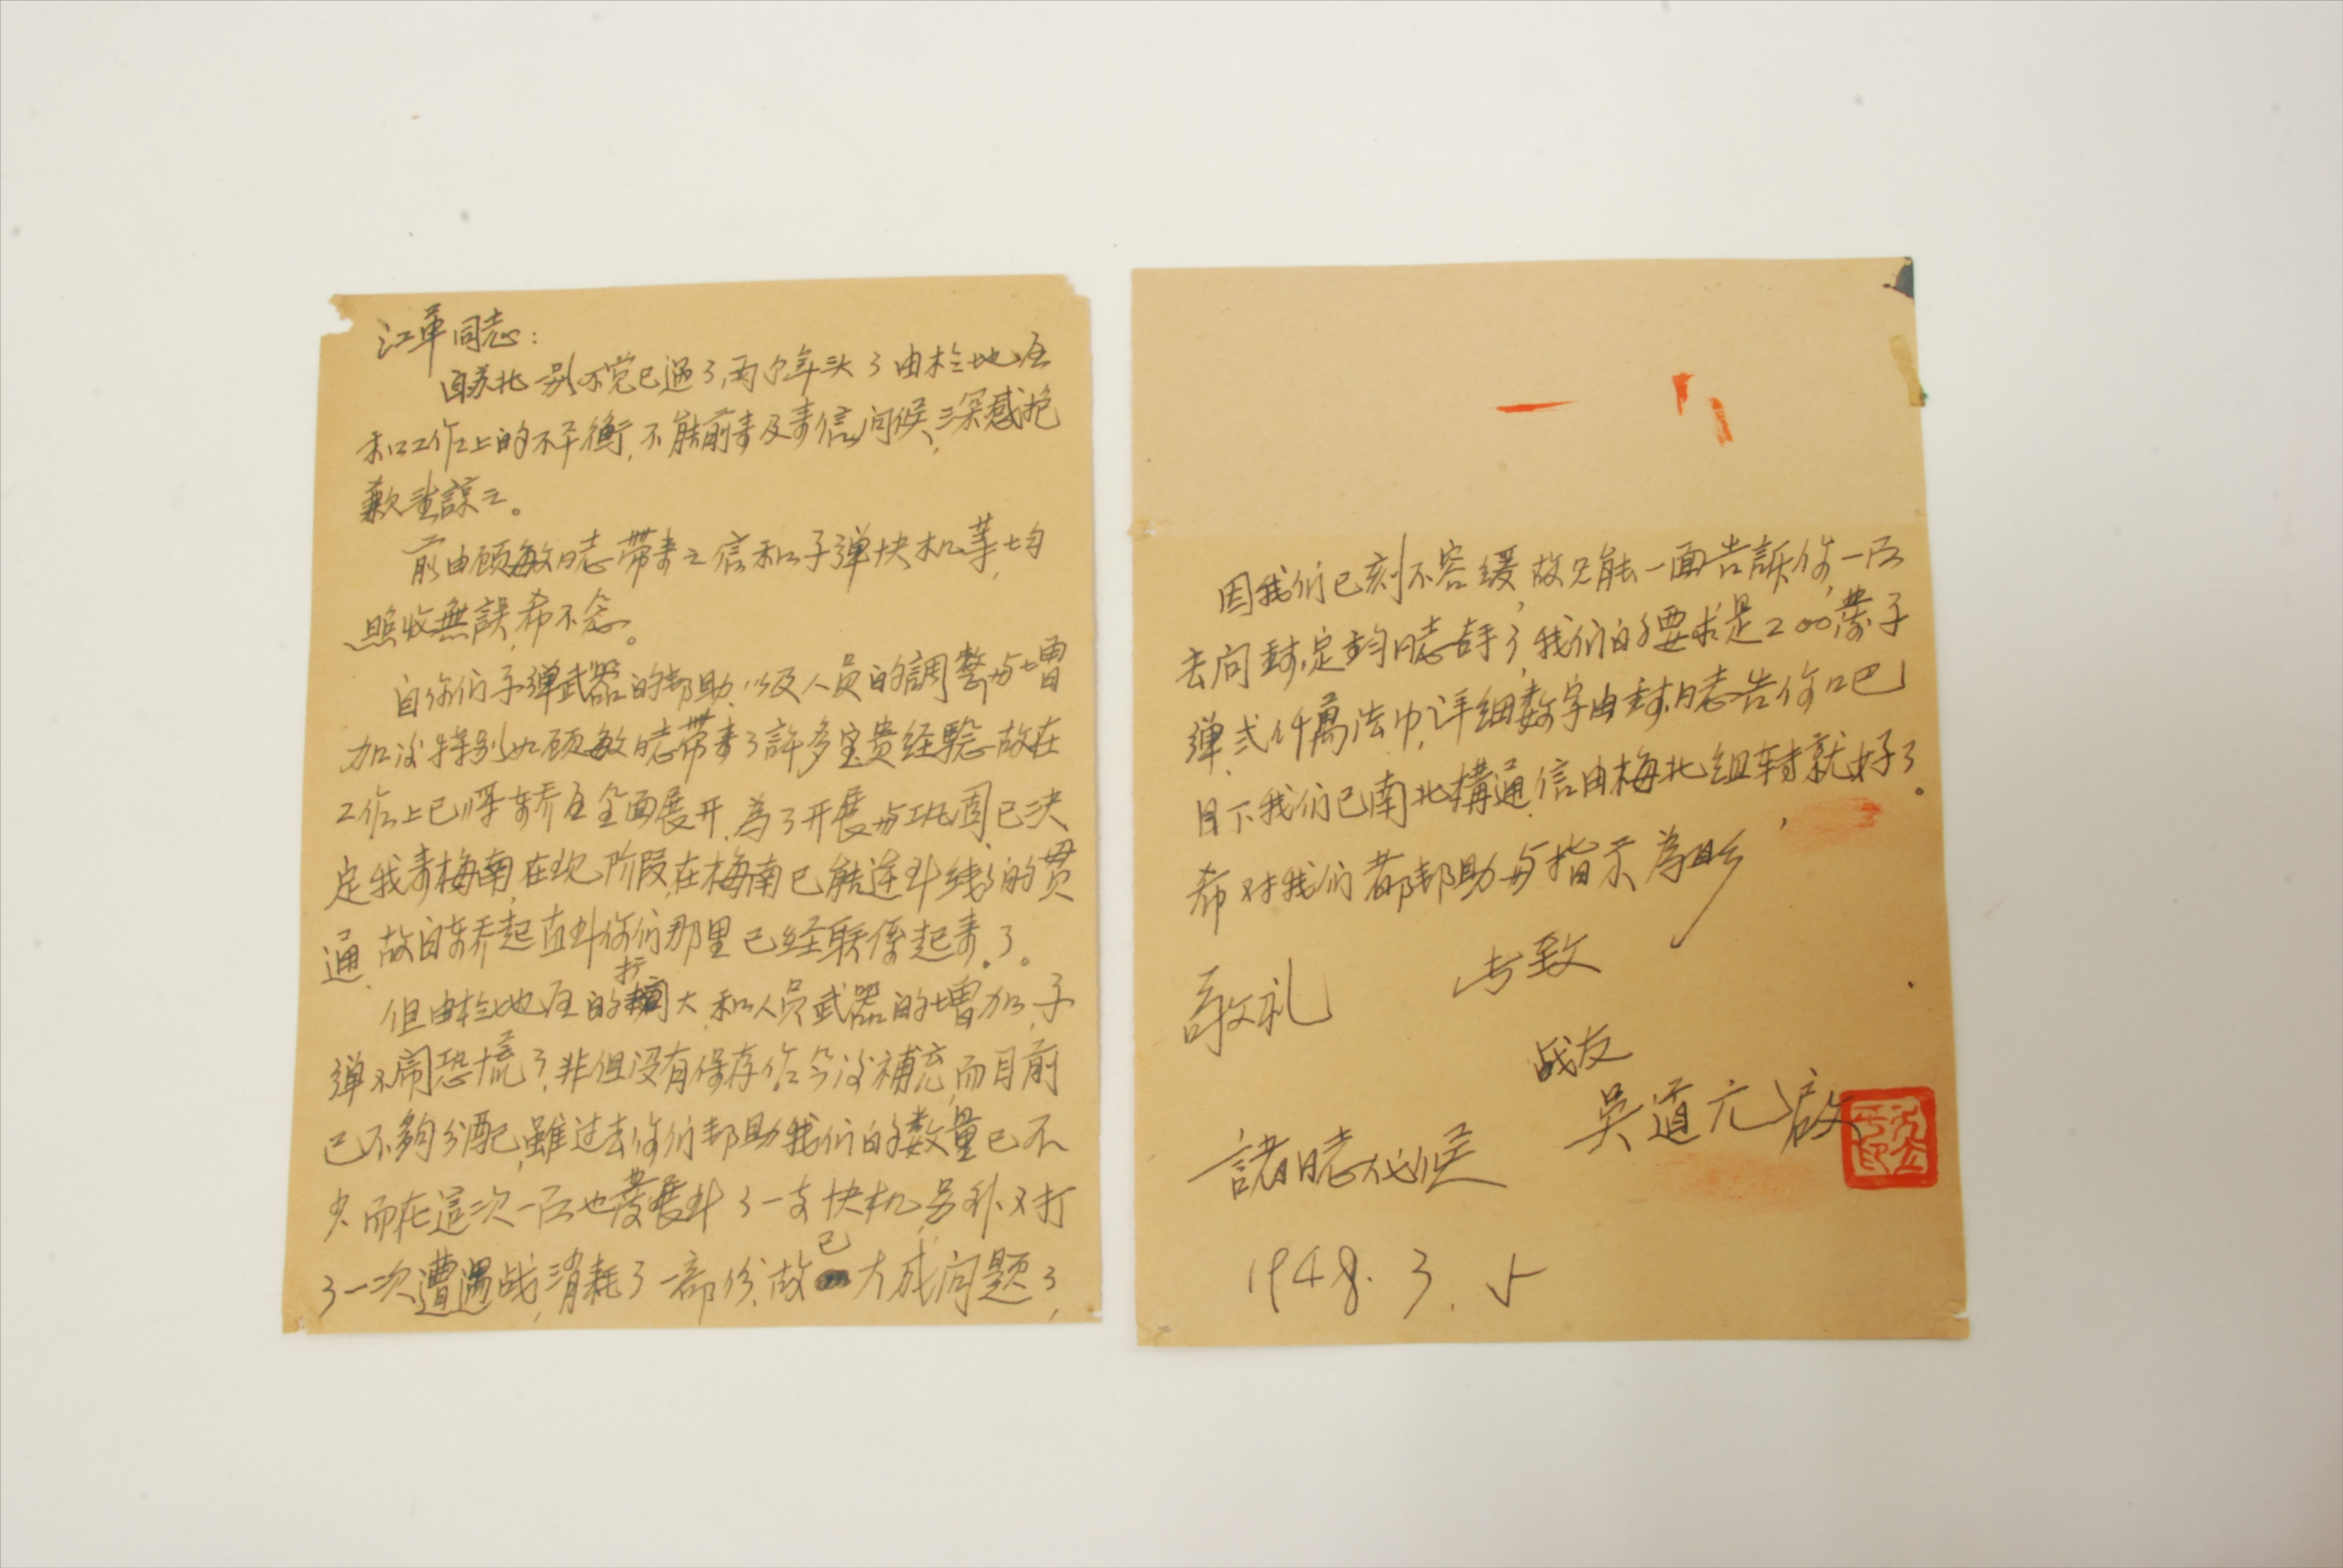 江军同志：
自苏北一别不觉已过了两个年头了由於地区
和工作上的不平衡，不能前来及来信问候，深感抱
歉望諒之。
前由顾敏同志带来之信和子弹快机等，均
照收無誤，希不念。
自你们子弹武器的帮助，以及人员的調整与增
加後特别如顾敏同志带来了許多宝贵经驗，故在
工作上已逐步转至全面展开，為了开展与巩固，已决
定我来梅南，在现阶段，在梅南已能连斗线的贯
通，故自莘莊起直到你们那里已经联係起来了。
但由於地区的扩大，和人员武器的增加，子
弹不闹恐慌了，非但没有保存作今後補充，而目前
已不够分配，雖过去你们帮助我们的数量已不
少，而在這次一区也發展到了一支快机，另外又打
了一次遭遇战，消耗了一部份，故已大成问题了，
因我们已刻不容缓，故只能一面告訴你，一面
去向封定钧同志告手了，我们的要求是200發子
弹，弍仟萬法币，详细数字由封同志告你吧
目下我们已南北構通，信由梅北组转就好了。
希对我们都帮助与指示為盼，
专致
敬礼
战友
吴道元启
諸同志代候
1948.3.5